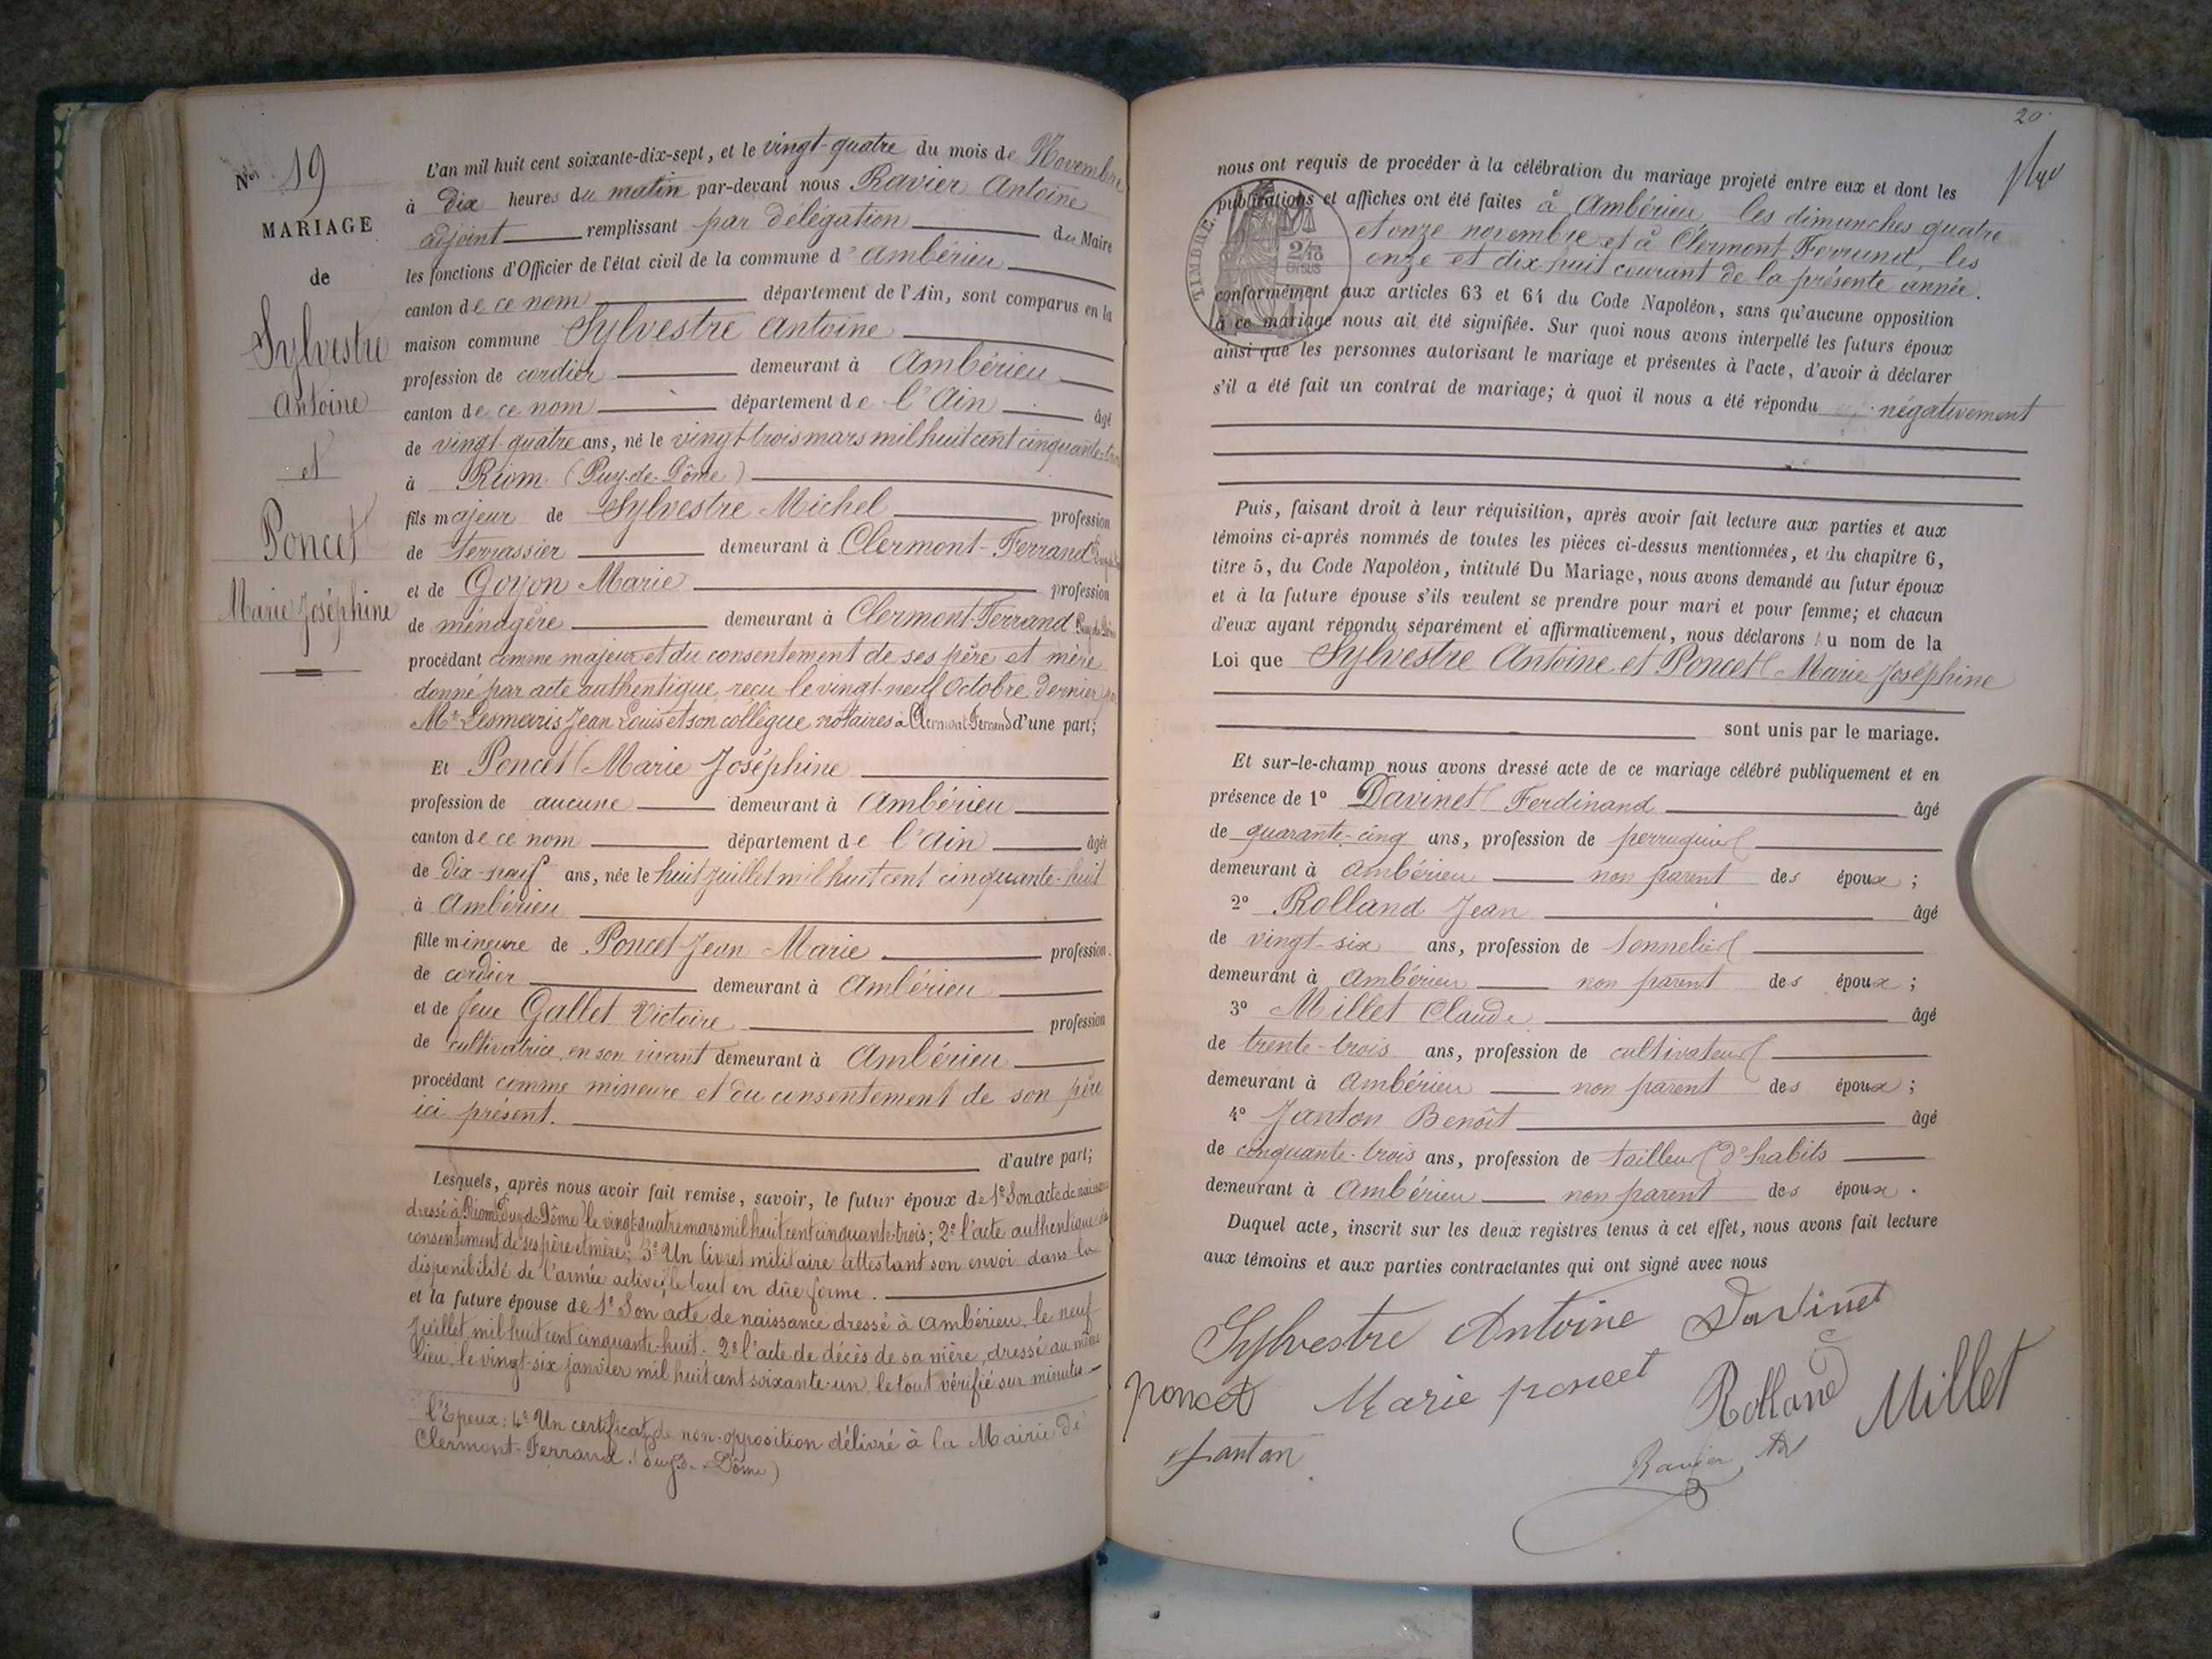 Nos 19
MARIAGE
de
Sylvestre
Antoine
et
Poncet
Marie Joséphine
L'an mil huit cent soixante-dix-sept, et le vingt-quatre du mois de Novembre
à dix heures du matin par-devant nous Ravier Antoine
adjoint remplissant par délégation du Maire
les fonctions d'Officier de l'état civil de la commune d'Ambérieu
canton de ce nom département de l'Ain, sont comparus en la
maison commune Sylvestre Antoine
profession de cordier demeurant à Ambérieu
canton de ce nom département de l'Ain âgé
de vingt-quatre ans, né le vingt-trois mars mil huit cent cinquante-trois
à Riom (Puy-de-Dôme)
fils majeur de Sylvestre Michel profession
de terrassier demeurant à Clermont-Ferrand
et de Goyon Marie profession
de ménagère demeurant à Clermont-Ferrand Puy de Dôme
procédant comme majeur et du consentement de ses père et mère
donné par acte authentique, reçu le vingt-neuf Octobre dernier par
Mr Desmaris Jean Louis et son collègue notaires à Clermont-Ferrand d'une part;
Et Poncet Marie Joséphine
profession de aucune demeurant à Ambérieu
canton de ce nom département de l'Ain âgée
de dix-neuf ans, née le huit juillet mil huit cent cinquante-huit
à Ambérieu
fille mineure de Poncet Jean Marie profession
de cordier demeurant à Ambérieu
et de feue Gallet Victoire profession
de cultivatrice, en son vivant demeurant à Ambérieu
procédant comme mineure et du consentement de son père
ici présent.
d'autre part;
Lesquels, après nous avoir fait remise, savoir, le futur époux de 1º Son acte de naissance
dressé à Riom (Puy-de-Dôme) le vingt-quatre mars mil huit cent cinquante-trois; 2º l'acte authentique du
consentement de ses père et mère; 3º Un livret militaire attestant son envoi dans la
disponibilité de l'armée active; le tout en dûe forme.
et la future épouse de 1º Son acte de naissance dressé à Ambérieu, le neuf
Juillet mil huit cent cinquante-huit. 2º l'acte de décès de sa mère, dressé au même
lieu, le vingt-six janvier mil huit cent soixante-un, le tout vérifié sur minutes
l'Epoux: 4º Un certificat de non-opposition délivré à la Mairie de
Clermont-Ferrand. (Puy-de-Dôme)
20
nous ont requis de procéder à la célébration du mariage projeté entre eux et dont les
publications et affiches ont été faites à Ambérieu les dimanches quatre
et onze novembre et à Clermont-Ferrand, les
onze et dix huit courant de la présente année.
TIMBRE.
conformément aux articles 63 et 64 du Code Napoléon, sans qu'aucune opposition
à ce mariage nous ait été signifiée. Sur quoi nous avons interpellé les futurs époux
ainsi que les personnes autorisant le mariage et présentes à l'acte, d'avoir à déclarer
s'il a été fait un contrat de mariage; à quoi il nous a été répondu négativement
Puis, faisant droit à leur réquisition, après avoir fait lecture aux parties et aux
témoins ci-après nommés de toutes les pièces ci-dessus mentionnées, et du chapitre 6,
titre 5, du Code Napoléon, intitulé Du Mariage, nous avons demandé au futur époux
et à la future épouse s'ils veulent se prendre pour mari et pour femme; et chacun
d'eux ayant répondu séparément et affirmativement, nous déclarons au nom de la
Loi que Sylvestre Antoine et Poncet Marie Joséphine
sont unis par le mariage.
Et sur-le-champ nous avons dressé acte de ce mariage célébré publiquement et en
présence de 1º Davinet Ferdinand âgé
de quarante-cinq ans, profession de perruquier
demeurant à Ambérieu non parent des époux;
2º Rolland Jean âgé
de vingt-six ans, profession de tonnelier
demeurant à Ambérieu non parent des époux;
3º Millet Claude âgé
de trente-trois ans, profession de cultivateur
demeurant à Ambérieu non parent des époux;
4º Janton Benoît âgé
de cinquante-trois ans, profession de tailleur d'habits
demeurant à Ambérieu non parent des époux.
Duquel acte, inscrit sur les deux registres tenus à cet effet, nous avons fait lecture
aux témoins et aux parties contractantes qui ont signé avec nous
Sylvestre Antoine Davinet
poncet Marie poncet Rolland Millet
Janton Ravier